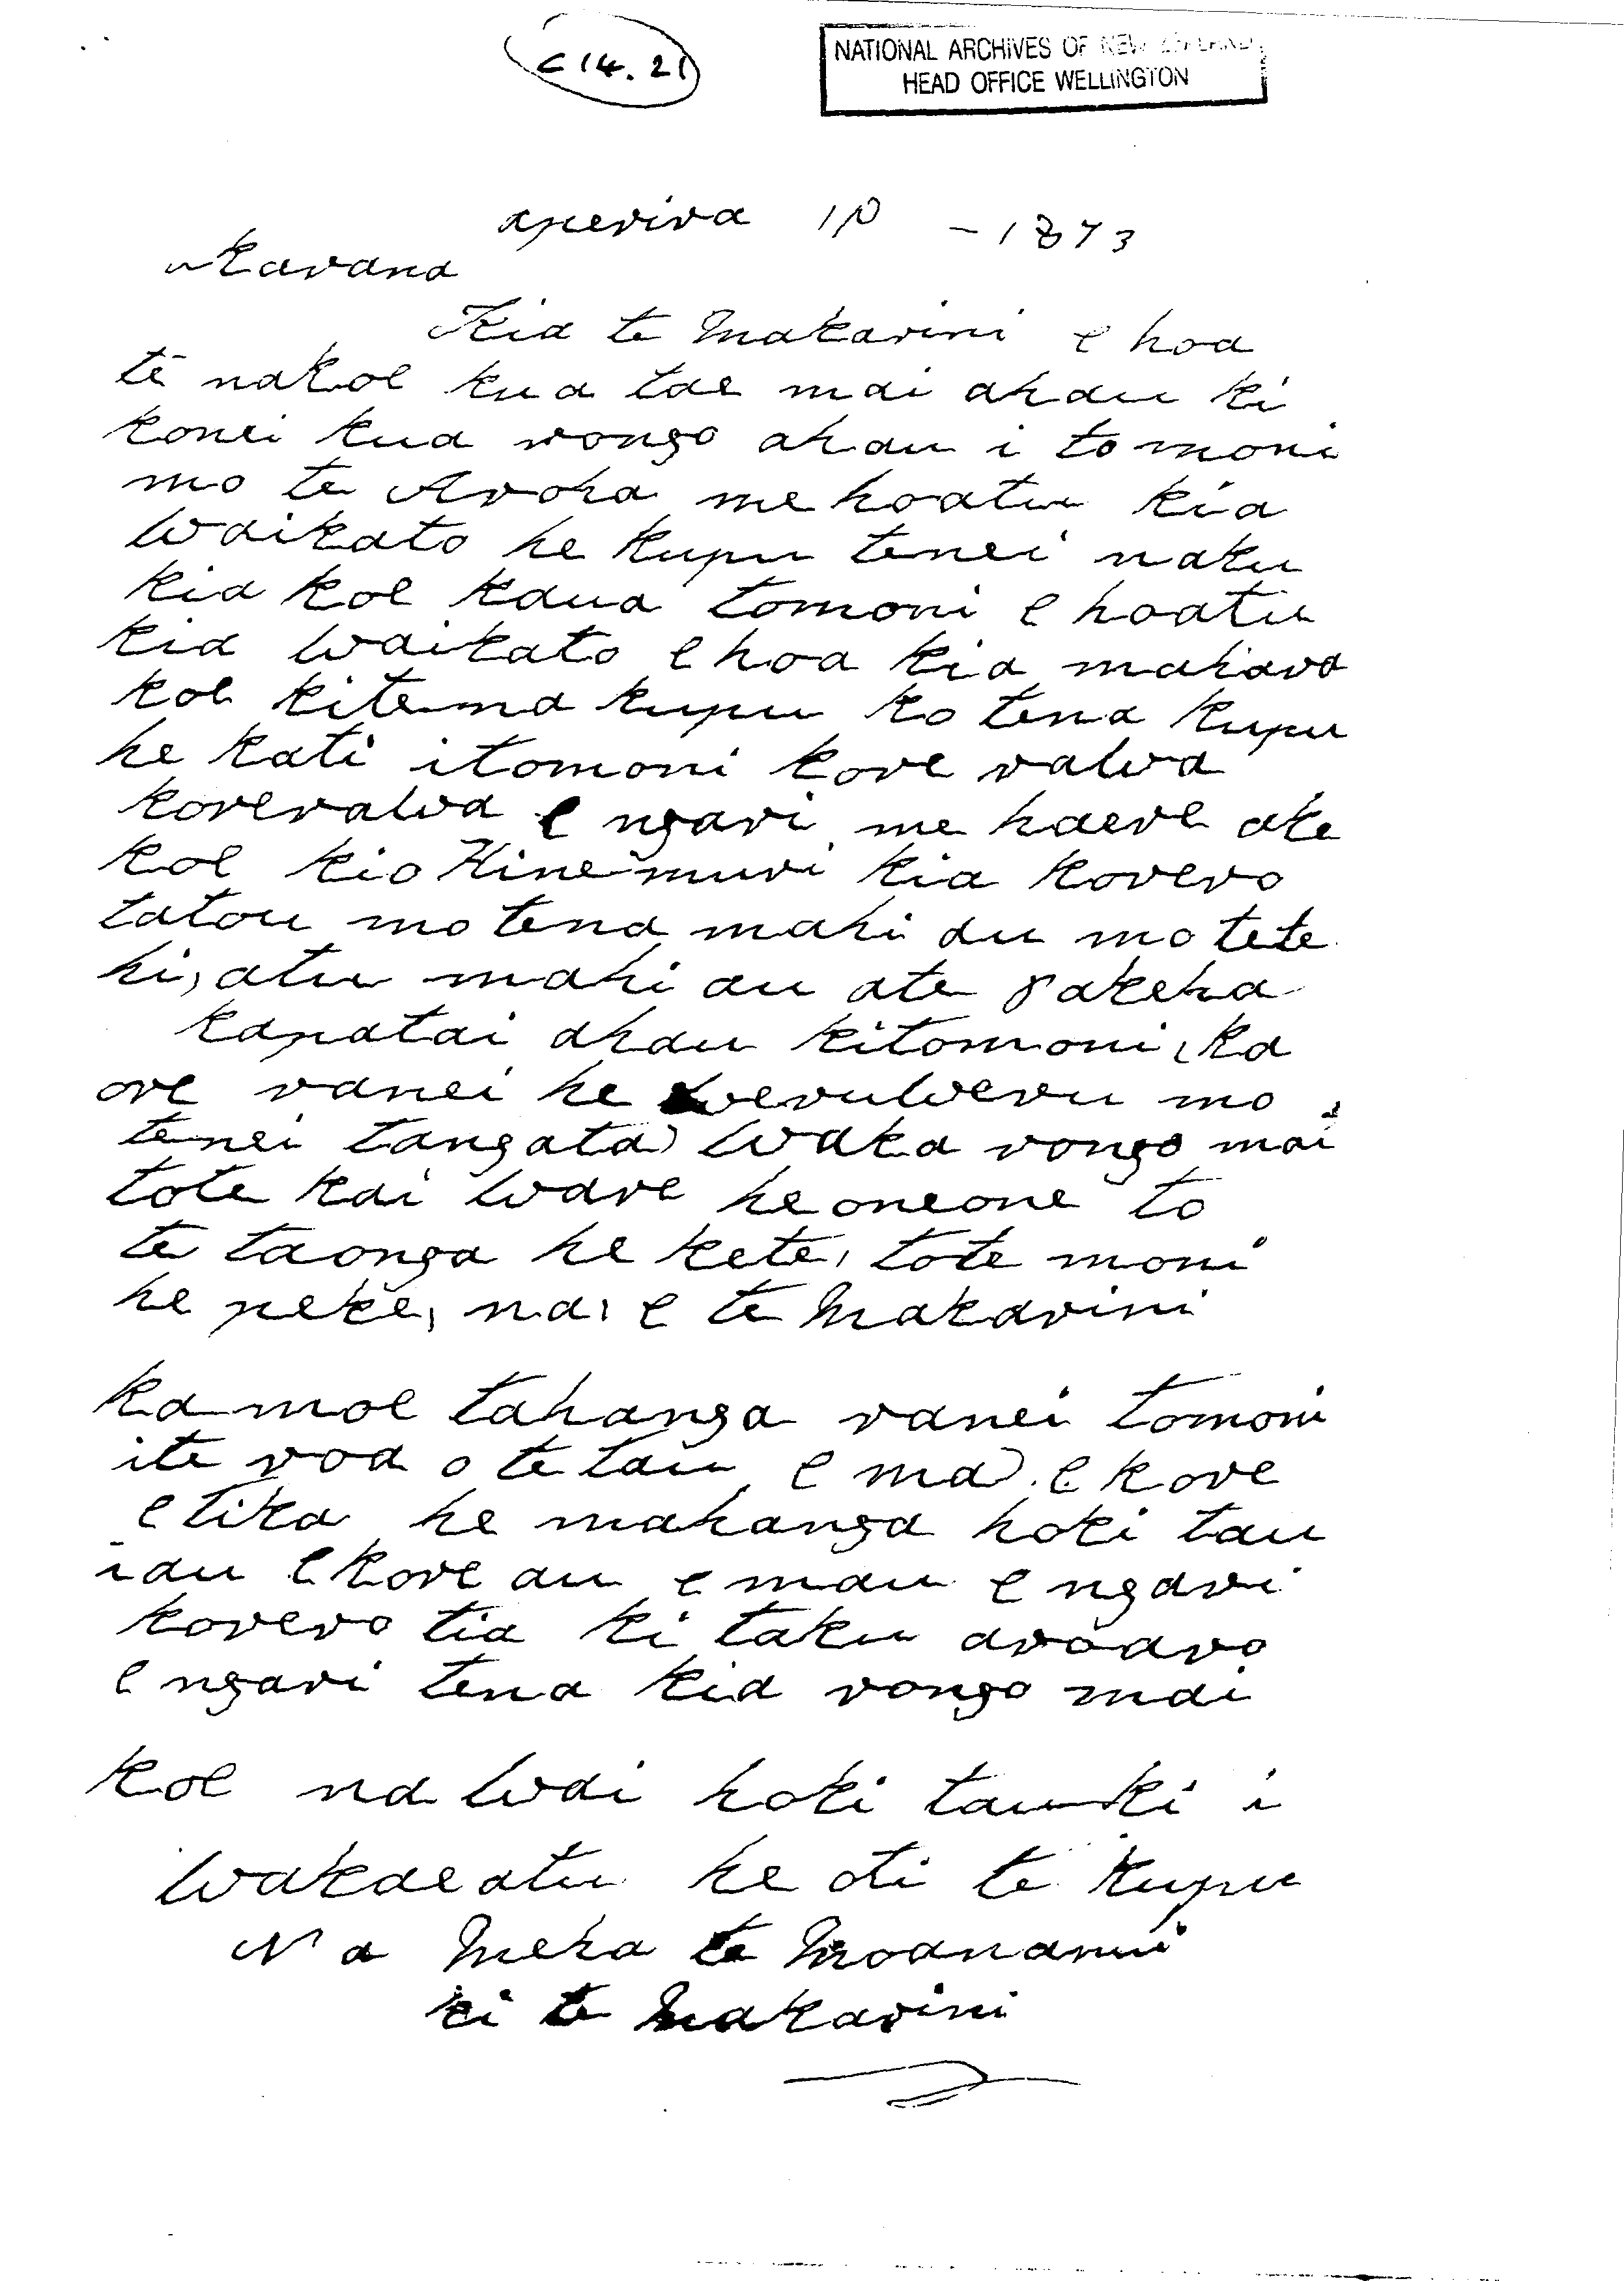 C 14. 21
NATIONAL ARCHIVES OF NEW ZEALAND
HEAD OFFICE WELLINGTON
aperira 10 - 1873
Karana
Kia te Makarini e hoa
te nakoe kua tae mai ahau ki
konei kua rongo ahau i to moni
mo te Aroha me hoatu kia
Waikato he kupu tenei naku
kia koe kaua tomoni e hoatu
kia Waikato e hoa kia mahara
koe kitema kupu ko tena kupu
he kati itomoni kore rawa
korerawa e ngari me haere ake
koe kio Hinemuri kia korero
tatou mo tena mahi au mo tete
hi, atu mahi au ate pakeha
kapatai ahau kitomoni, ka
ore ranei he weruweru mo
tenei tangata) waka rongo mai
tote kai ware heoneone to
te taonga he kete, tote moni
he peke, na, e te Makarini
ka moe tahanga ranei tomoni
ite roa o te tau e ma). e kore
e tika he mahanga hoki tau
iau e kore au e mau e ngari
korero tia ki taku aroaro
e ngari tena kia rongo mai
koe na wai hoki tau ki i
wakaeatu he oti te kupu
N a Meha te Moananui
ki te Makarini